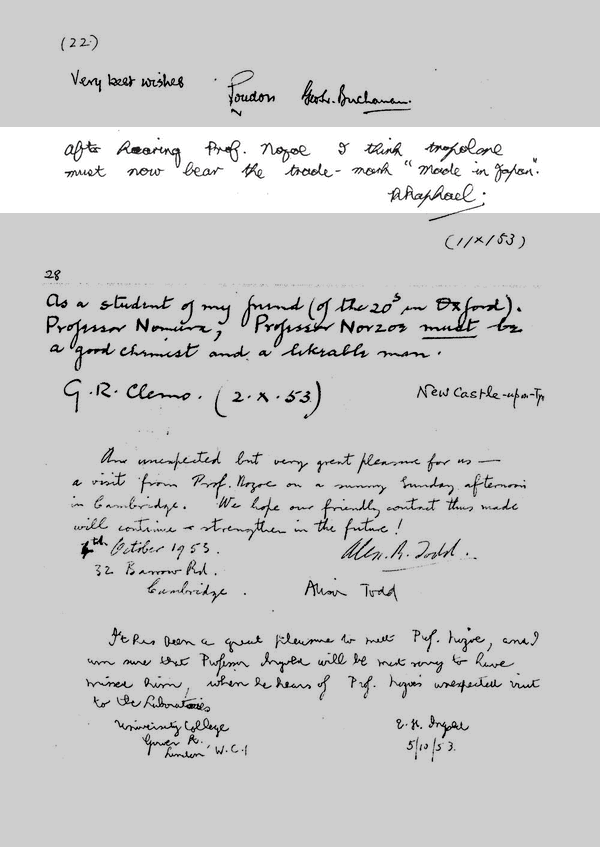 (22)
Very best wishes Loudon Geo. L. Buchanan.
After hearing Prof. Nozoe I think tropolone
must now bear the trade-mark "Made in Japan".
R. Raphael.
(1/X/53)
28
As a student of my friend (of the 20s in Oxford).
Professor Nomura, Professor Norzoe must be
a good chemist and a likeable man.
G. R. Clemo. (2.X.53)
New Castle-upon-Tyn
An unexpected but very great pleasure for us —
a visit from Prof. Nozoe on a sunny Sunday afternoon
in Cambridge. We hope our friendly contact thus made
will continue & strengthen in the future!
4th October 1953. Alex. R. Todd.
32 Barrow Rd.
Cambridge. Alison Todd
It has been a great pleasure to meet Prof. Nozoe, and I
am sure that Professor Ingold will be most sorry to have
missed him, when he hears of Prof. Nozoe's unexpected visit
to the Laboratories
University College
Gower St.
London W.C.1
E. H. Ingold
5/10/53.